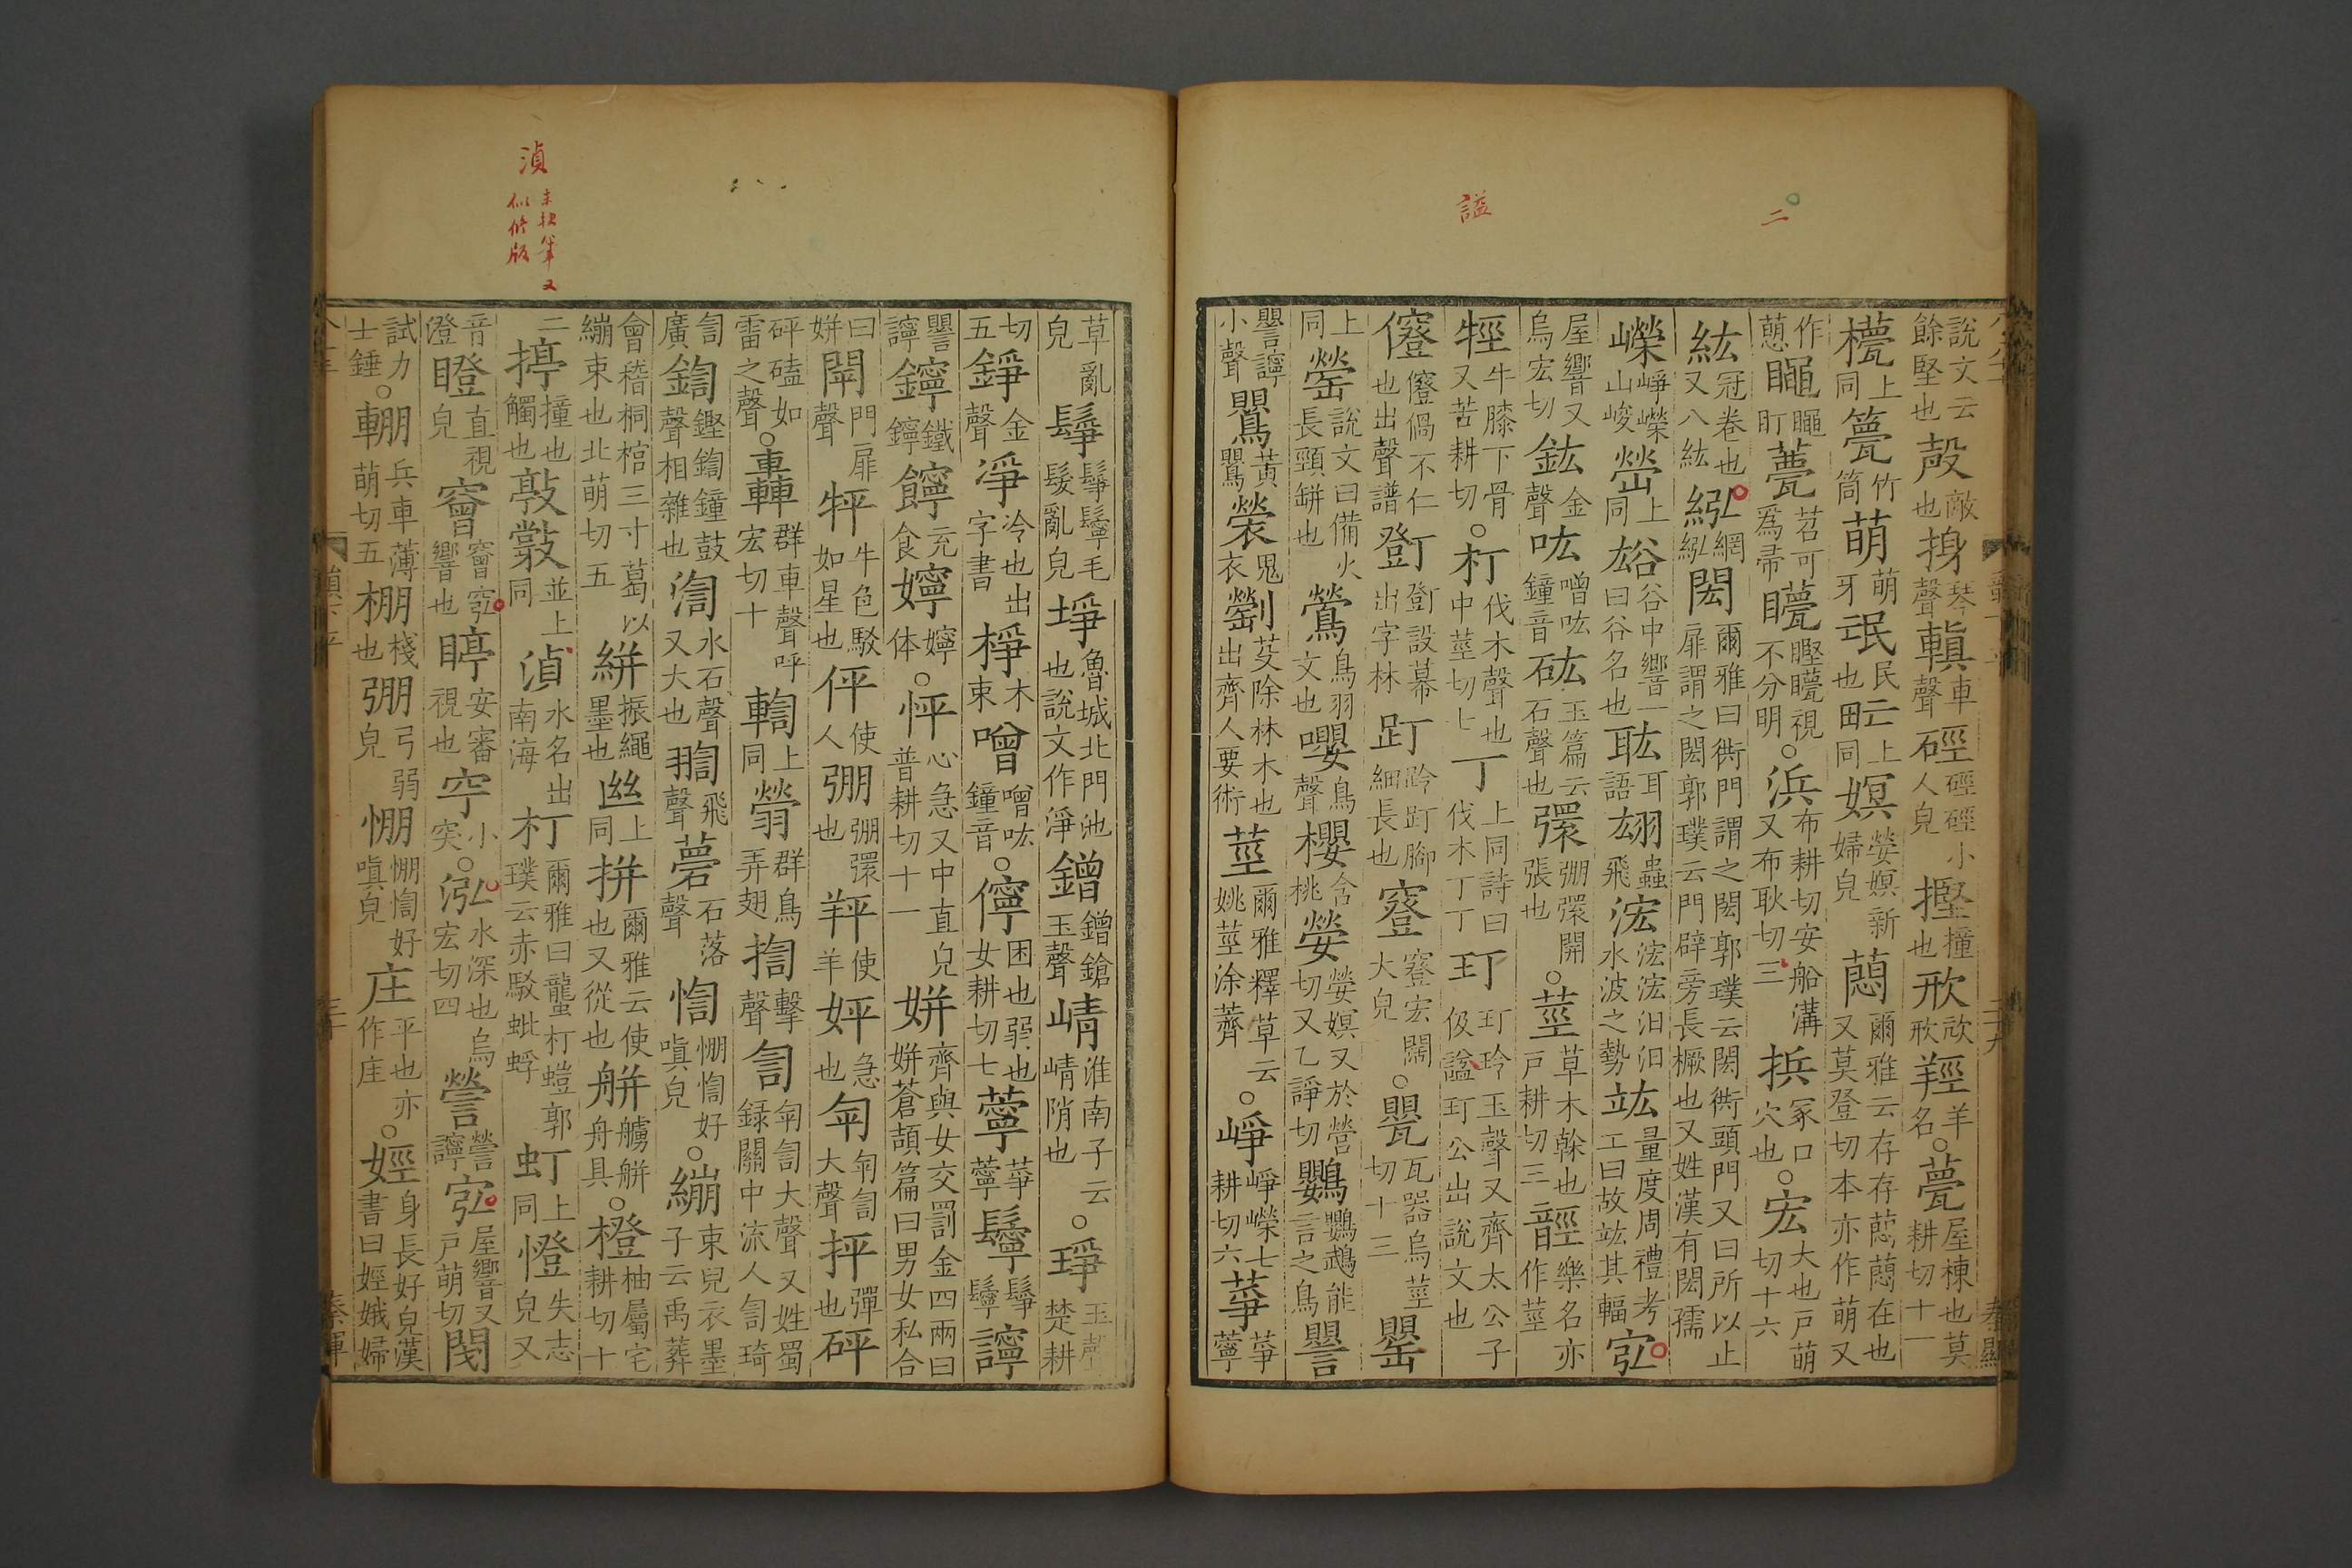 二
謚
說文云餘堅也㱿敵也𢮁琴聲轋車聲硜硜硜小人皃摼撞也𣢖𣢖羥羊名○甍屋棟也莫耕切十一
橗上同𥯑竹筒萌萌牙氓民也甿上同嫇嫈嫇新婦皃蕄爾雅云存存蕄蕄在也又莫登切本亦作萌又
作蕄䁅䁅盯薨苕可爲帚𥋝瞘𥋝視不分明○浜布耕切安船溝又布耿切三㧍冢口穴也○宏大也戶萌切十六
紘冠卷也又八紘紭網紭閎爾雅曰衖門謂之閎郭璞云閎衖頭門又曰所以止扉謂之閎郭璞云門辟旁長橛也又姓漢有閎孺
嶸崢嶸山峻㟦上同谹谷中響一曰谷名也耾耳語翃蟲飛浤浤浤汩汩水波之勢竑量度周禮考工曰故竑其輻宖
屋響又烏宏切鈜金聲吰噌吰鐘音硡玉篇云石聲也彋弸彋開張也○莖草木榦也戶耕切三䪫樂名亦作莖
牼牛膝下骨又苦耕切○朾伐木聲也中莖切七丁上同詩曰伐木丁丁玎玎玲玉聲又齊太公子伋謚玎公出說文也
僜僜偒不仁也出聲譜㽅㽅設幕出字林趶跉趶腳細長也𥨲𥨲宏大皃闊○甖瓦器烏莖切十三罌
上同罃說文曰備火長頸缾也鶯鳥羽文也嚶鳥聲櫻含桃嫈嫈嫇又於營切又乙諍切鸚鸚䳇能言之鳥譻
譻𧭈小聲鷪黃鷪褮鬼衣劉芟除林木也出齊人要術莖爾雅釋草云姚莖涂薺○崢崢嶸七耕切六䔛䔛薴
草亂皃鬇鬇鬡毛髮亂皃埩魯城北門池也說文作淨鏳鏳鎗玉聲崝淮南子云崝陗也○琤玉聲楚耕
切五錚金聲凈冷也出字書棦木束噌噌吰鐘音○儜困也弱也女耕切七薴䔛薴鬡鬇鬡𧭈
譻𧭈鑏鐵鑏䭢充食嬣嬣体○怦心急又中直皃普耕切十一姘齊與女交罰金四兩曰姘蒼頡篇曰男女私合
曰姘閛門扉聲𤘾牛色駁如星也伻使人弸弸彋也䍈使羊㛁急也匉匉訇大聲抨彈也砰
砰磕如雷之聲○轟群車聲呼宏切十輷上同𦒢群鳥弄翅揈擊聲訇匉訇大聲又姓蜀錄關中流人訇琦
訇廣鍧鏗鍧鐘鼓聲相雜也渹水石聲又大也䎕飛聲𥔀石落聲㥊㤶㥊好嗔皃○繃束兒衣墨子云禹葬
會稽桐棺三寸葛以繃束也北萌切五絣振繩墨也𢆸上同拼爾雅云使也又從也𦨻艣𦨻舟具○橙柚屬宅耕切十
二揨撞也觸也敦𢿦並上同湞水名出南海朾爾雅曰蠪朾螘郭璞云赤駁蚍蜉虰上同憕失志皃又
音澄瞪直視皃𥨲𥨲宖響也䁎安審視也穵小突○泓水深也烏宏切四謍謍𧭈宖屋響又戶萌切閺
試力士錘○輣兵車薄萌切五棚棧也弸弓弱皃㥊㥊㥊好嗔皃庄平也亦作庄○娙身長好皃漢書曰娙娥婦
湞
未抉筆又
似修版